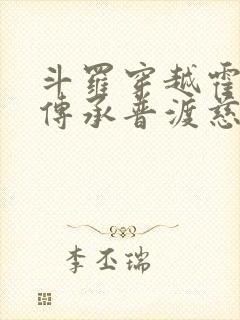 斗羅穿越霍
傳承普渡慈
李丕瑞